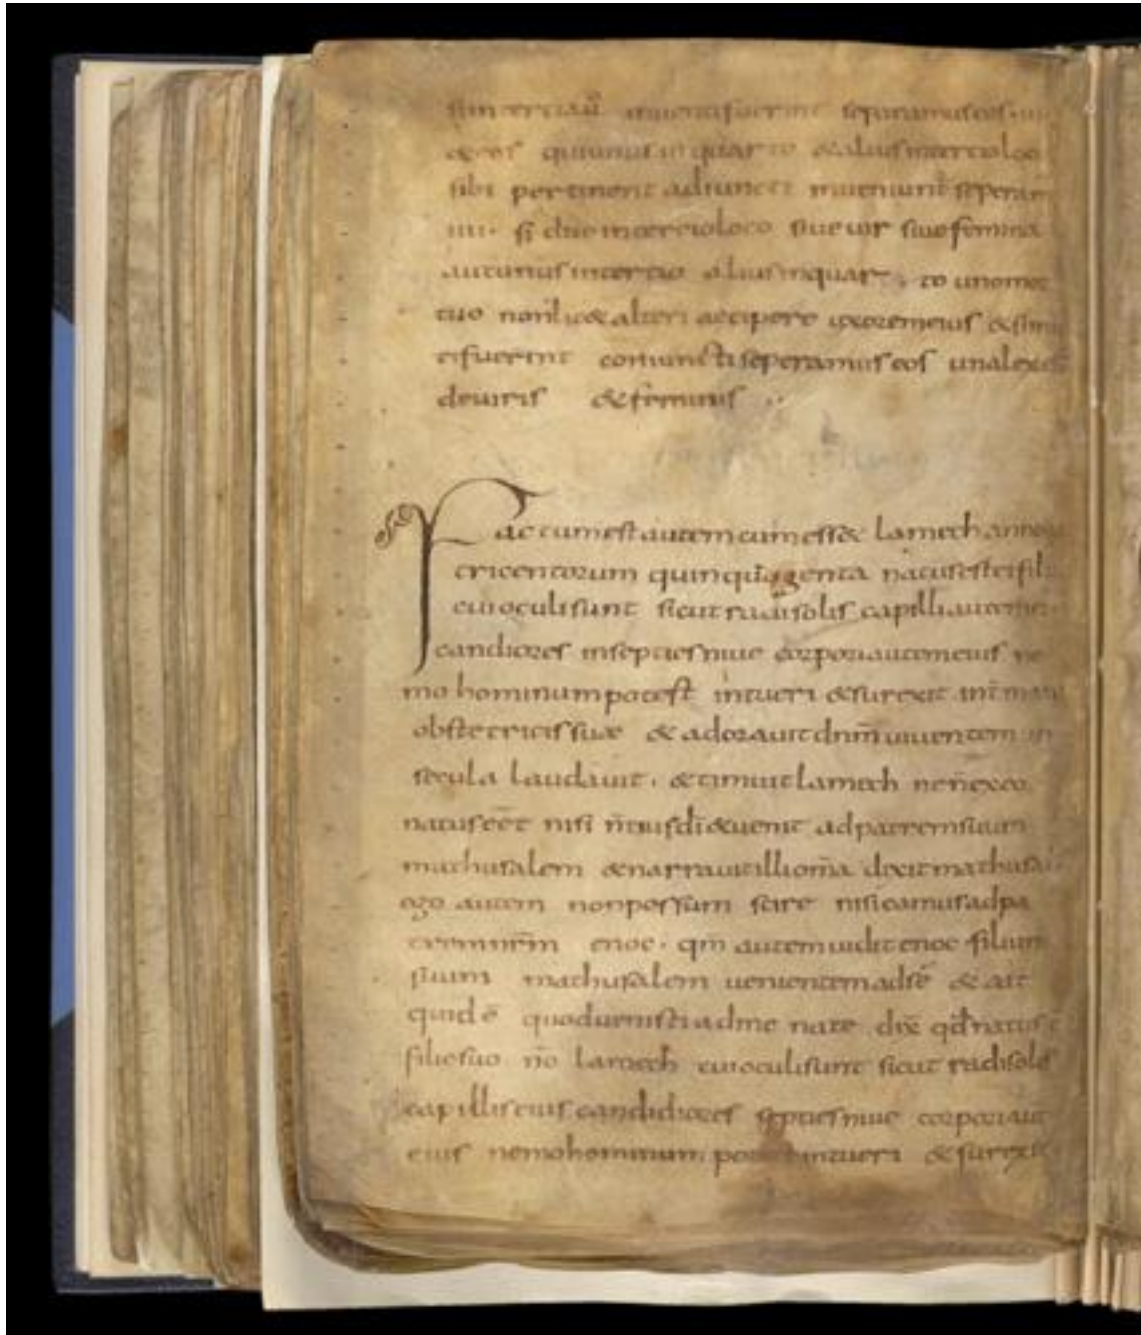 quiunus in quarto & alius in tertio loco
sibi pertinent adiuncti inueniunt̄ seperam
iiii. si duo in tertio loco siue uir siue femina
aut unus in tertio alius in quar to uno mor
tuo non lic& alteri accipere uxorem eius & si in
fuerint coniuncti seperamus eos una lex
de uiris & feminis
Factum est autem cum ess& lamech anno
tricentorum quinquagenta natus est ei fili
cui oculi sunt sicut radi solis capilli autem
candiores in septies niue corpori autem eius ne
mo hominum potest intueri & surexit int̄ man
obstetricis suæ & adorauit dnm̄ uiuentem in
secula laudauit. & timuit lamech ne n̄ ex eo
natus eēt nisi n̄tius dī & uenit ad patrem suum
mathusalem & narrauit illi om̄a dixit mathusa
ego autem non possum scire nisi eamus ad pa
trem nr̄m enoc. qm̄ autem uidit enoc filium
suum mathusalem uenientem ad sē & ait
quid ē quod uenisti ad me nate dix̄ qd̄ natus
filio suo nō lamech cui oculi sunt sicut radi solis
capillis eius candidiores septies niue corpori aut
eius nemo hominum intueri & surexit